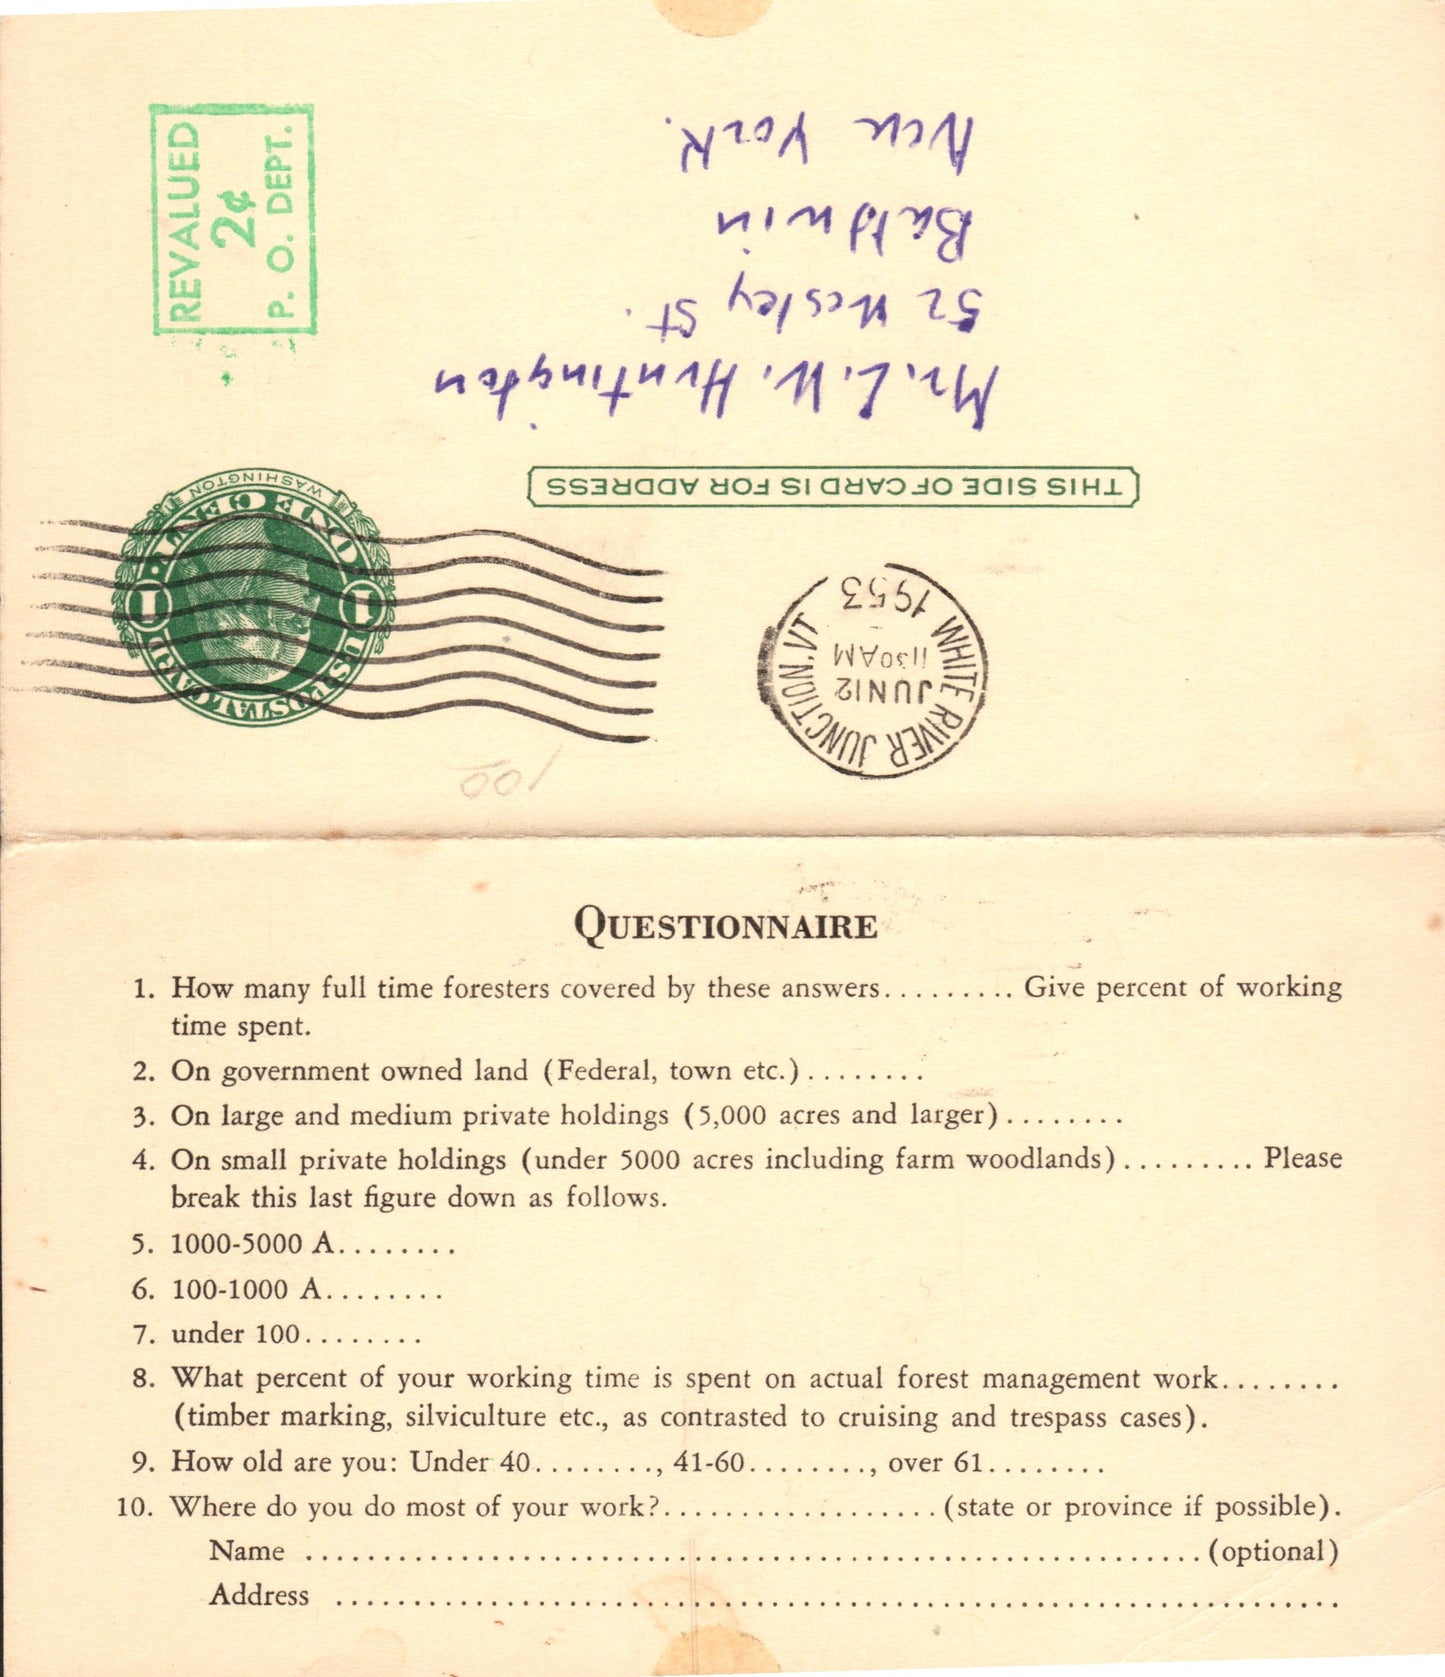 REVALUED
2¢
P. O. DEPT.
WASHINGTON
ONE CENT
1 1
U.S. POSTAL CARD
THIS SIDE OF CARD IS FOR ADDRESS
WHITE RIVER JUNCTION, VT
JUN 12
11 30 AM
1953
Mr. L. W. Huntington
52 Wesley St.
Baldwin
New York.
100
QUESTIONNAIRE
1. How many full time foresters covered by these answers......... Give percent of working
time spent.
2. On government owned land (Federal, town etc.)........
3. On large and medium private holdings (5,000 acres and larger)........
4. On small private holdings (under 5000 acres including farm woodlands)......... Please
break this last figure down as follows.
5. 1000-5000 A........
6. 100-1000 A........
7. under 100........
8. What percent of your working time is spent on actual forest management work........
(timber marking, silviculture etc., as contrasted to cruising and trespass cases).
9. How old are you: Under 40........, 41-60........, over 61........
10. Where do you do most of your work?..................(state or province if possible).
Name ..........................................................(optional)
Address .................................................................